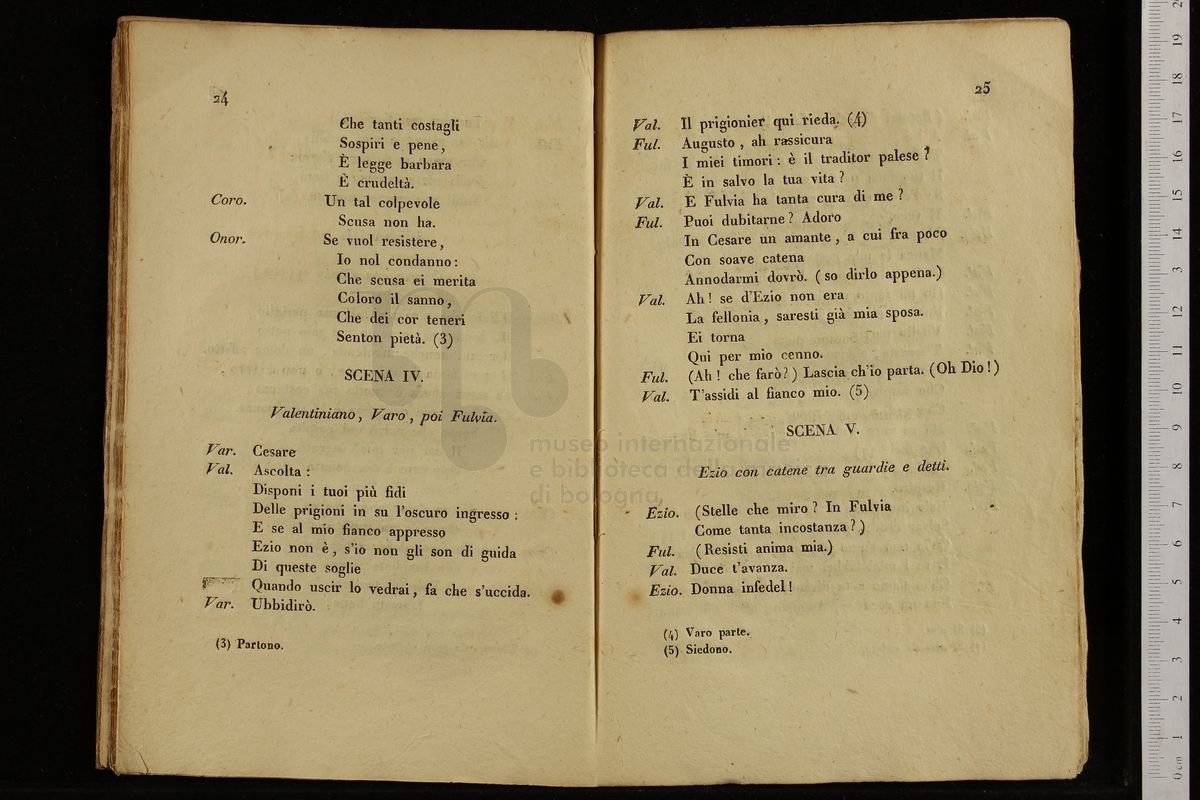 24
Che tanti costagli
Sospiri e pene,
È legge barbara
È crudeltà.
Coro. Un tal colpevole
Scusa non ha.
Onor. Se vuol resistere,
Io nol condanno:
Che scusa ei merita
Coloro il sanno,
Che dei cor teneri
Senton pietà. (3)
SCENA IV.
Valentiniano, Varo, poi Fulvia.
Var. Cesare
Val. Ascolta:
Disponi i tuoi più fidi
Delle prigioni in su l'oscuro ingresso:
E se al mio fianco appresso
Ezio non è, s'io non gli son di guida
Di queste soglie
Quando uscir lo vedrai, fa che s'uccida.
Var. Ubbidirò.
(3) Partono.
25
Val. Il prigionier qui rieda. (4)
Ful. Augusto, ah rassicura
I miei timori: è il traditor palese?
È in salvo la tua vita?
Val. E Fulvia ha tanta cura di me?
Ful. Puoi dubitarne? Adoro
In Cesare un amante, a cui fra poco
Con soave catena
Annodarmi dovrò. (so dirlo appena.)
Val. Ah! se d'Ezio non era
La fellonia, saresti già mia sposa.
Ei torna
Qui per mio cenno.
Ful. (Ah! che farò?) Lascia ch'io parta. (Oh Dio!)
Val. T'assidi al fianco mio. (5)
SCENA V.
Ezio con catene tra guardie e detti.
Ezio. (Stelle che miro? In Fulvia
Come tanta incostanza?)
Ful. (Resisti anima mia.)
Val. Duce t'avanza.
Ezio. Donna infedel!
(4) Varo parte.
(5) Siedono.
museo internazionale
e biblioteca della
di bologna
0 cm 1 2 3 4 5 6 7 8 9 10 11 12 13 14 15 16 17 18 19